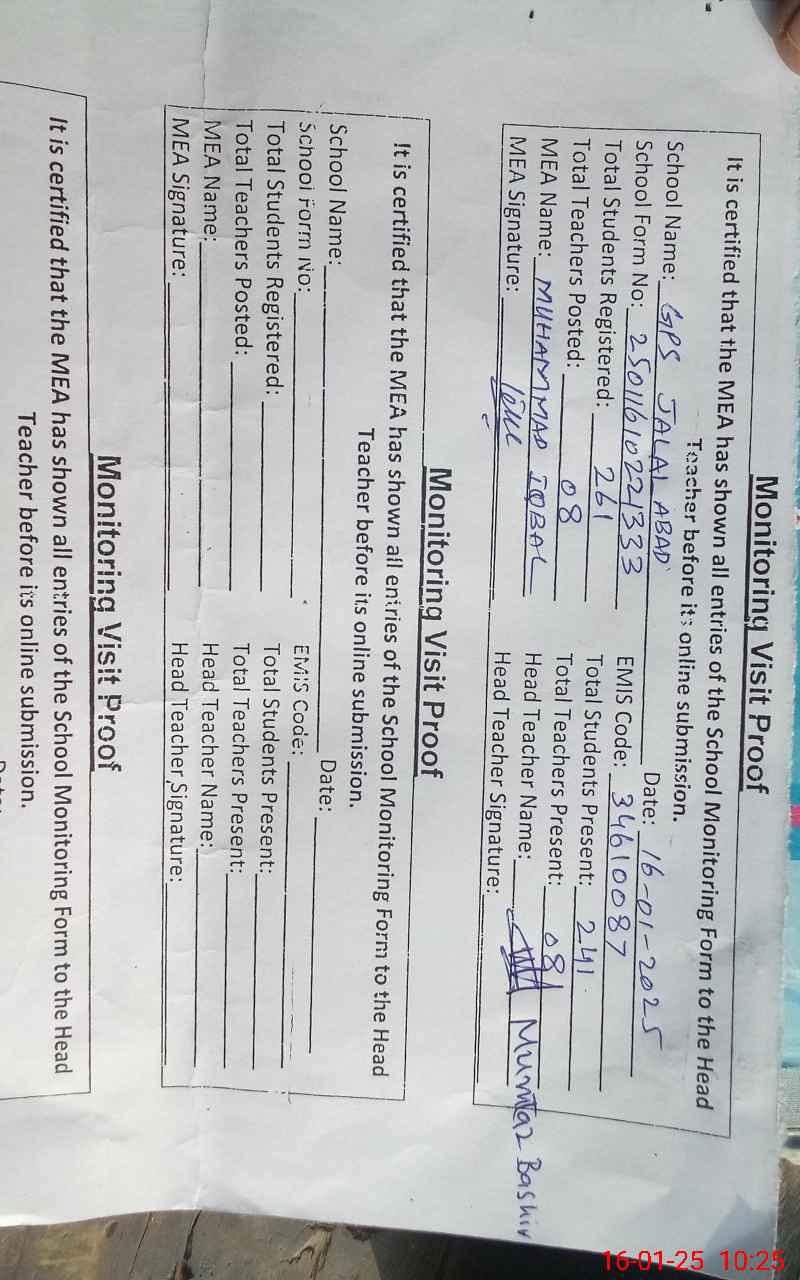 Monitoring Visit Proof
It is certified that the MEA has shown all entries of the School Monitoring Form to the Head
Teacher before its online submission.
School Name: GPS JALAL ABAD Date: 16-01-2025
School Form No: 25011610221333 EMIS Code: 34610087
Total Students Registered: 261 Total Students Present: 241
Total Teachers Posted: 08 Total Teachers Present: 08
MEA Name: MUHAMMAD IQBAL Head Teacher Name: Mumtaz Bashir
MEA Signature: Head Teacher Signature:
Monitoring Visit Proof
It is certified that the MEA has shown all entries of the School Monitoring Form to the Head
Teacher before its online submission.
School Name: Date:
School Form No: EMIS Code:
Total Students Registered: Total Students Present:
Total Teachers Posted: Total Teachers Present:
MEA Name: Head Teacher Name:
MEA Signature: Head Teacher Signature:
Monitoring Visit Proof
It is certified that the MEA has shown all entries of the School Monitoring Form to the Head
Teacher before its online submission.
16-01-25 10:25